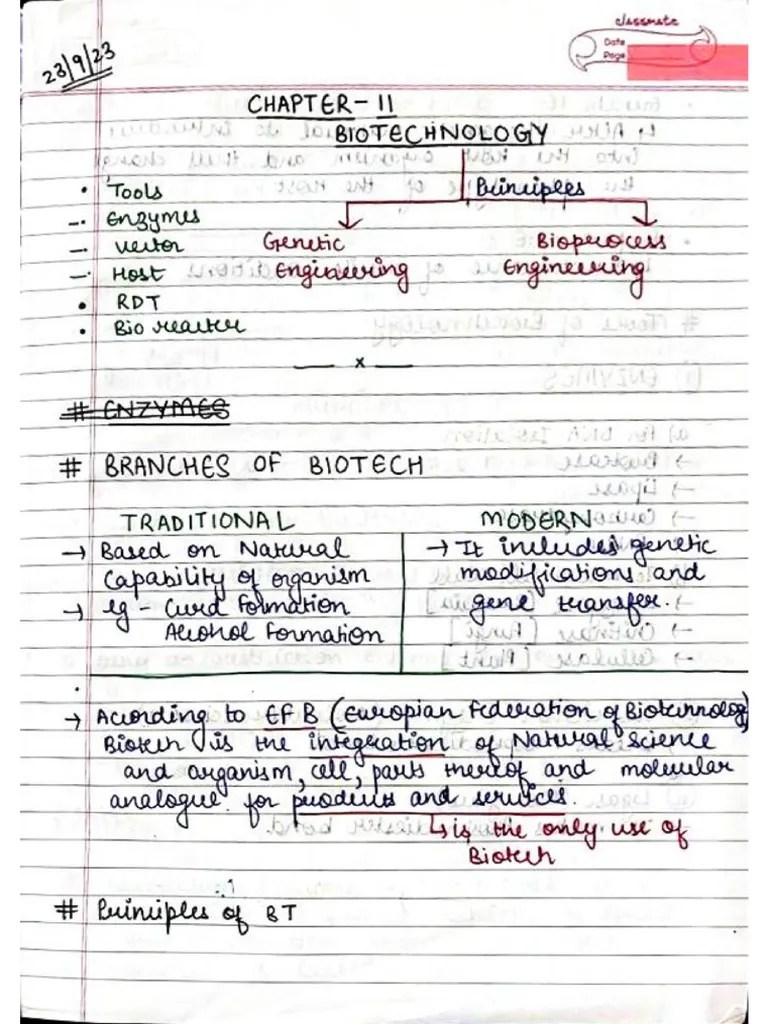 classmate
Date
Page
23/9/23
CHAPTER-11
BIOTECHNOLOGY
• Tools
Principles
–· Enzymes
–· Vector
Genetic Engineering
Bioprocess Engineering
–· Host
• RDT
• Bio reactor
— x —
# ENZYMES
# BRANCHES OF BIOTECH
TRADITIONAL
→ Based on Natural
Capability of organism
→ eg - Curd Formation
Alcohol Formation
MODERN
→ It includes genetic
modifications and
gene transfer.
→ According to EFB (Europian Federation of Biotechnology)
Biotech is the integration of Natural Science
and organism, cell, parts thereof and molecular
analogue for products and services.
↳ is the only use of
Biotech
# Principles of BT